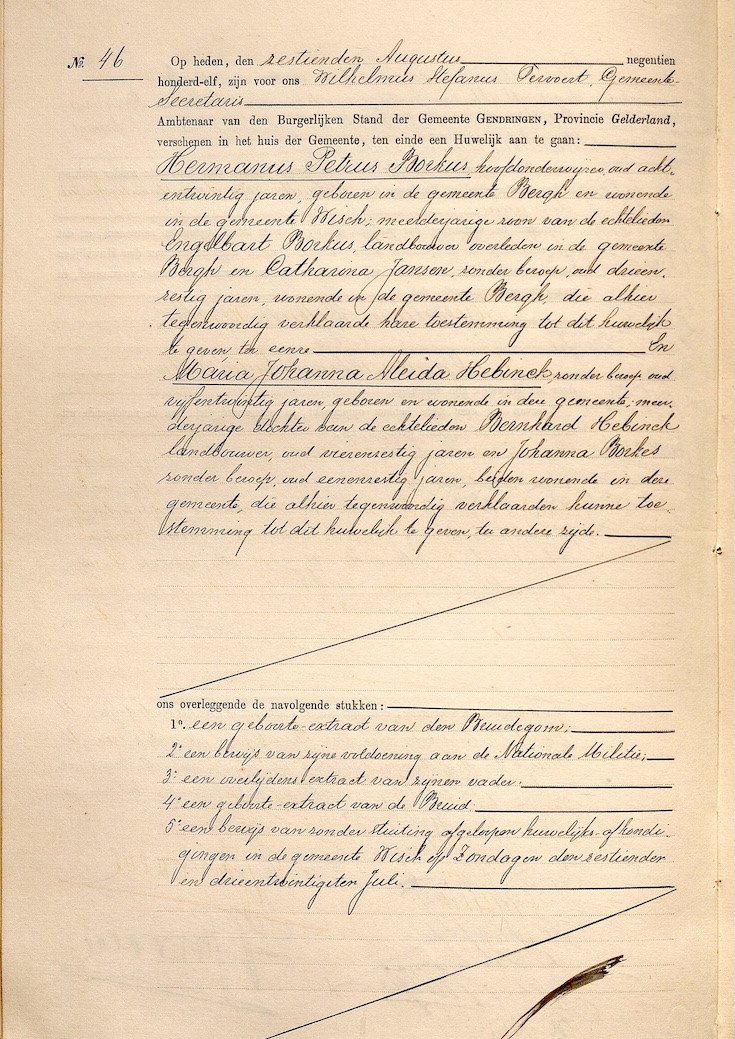 №. 46
Op heden, den zestienden Augustus negentien
honderd-elf, zijn voor ons Wilhelmus Stefanus Tervoert, Gemeente-
Secretaris
Ambtenaar van den Burgerlijken Stand der Gemeente GENDRINGEN, Provincie Gelderland,
verschenen in het huis der Gemeente, ten einde een Huwelijk aan te gaan:
Hermanus Petrus Borkus, hoofdonderwijzer, oud acht-
entwintig jaren, geboren in de gemeente Bergh en wonende
in de gemeente Wisch; meerderjarige zoon van de echtelieden
Engelbart Borkus, landbouwer overleden in de gemeente
Bergh en Catharina Jansen, zonder beroep, oud drieen-
zestig jaren, wonende in de gemeente Bergh, die alhier
tegenwoordig verklaarde hare toestemming tot dit huwelijk
te geven ter eenre En
Maria Johanna Aleida Hebinck, zonder beroep oud
vijfentwintig jaren, geboren en wonende in deze gemeente, meer-
derjarige dochter van de echtelieden Bernhard Hebinck
landbouwer, oud vierenzestig jaren en Johanna Borkes
zonder beroep, oud eenenzestig jaren, beiden wonende in deze
gemeente, die alhier tegenwoordig verklaarden hunne toe-
stemming tot dit huwelijk te geven, ter andere zijde.
ons overleggende de navolgende stukken:
1°. een geboorte-extract van den Bruidegom;
2° een bewijs van zijne voldoening aan de Nationale Militie;
3° een overlijdens-extract van zijnen vader;
4° een geboorte-extract van de Bruid
5° een bewijs van zonder stuiting afgeloopen huwelijks-afkondi-
gingen in de gemeente Wisch op Zondagen den zestienden
en drieentwintigsten Juli.